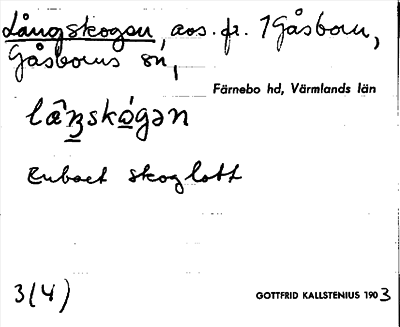 Långskogen, aos. fr. 1 Gåsborn,
Gåsborns sn,
Färnebo hd, Värmlands län
Enbart skoglott
3(4)
GOTTFRID KALLSTENIUS 1903